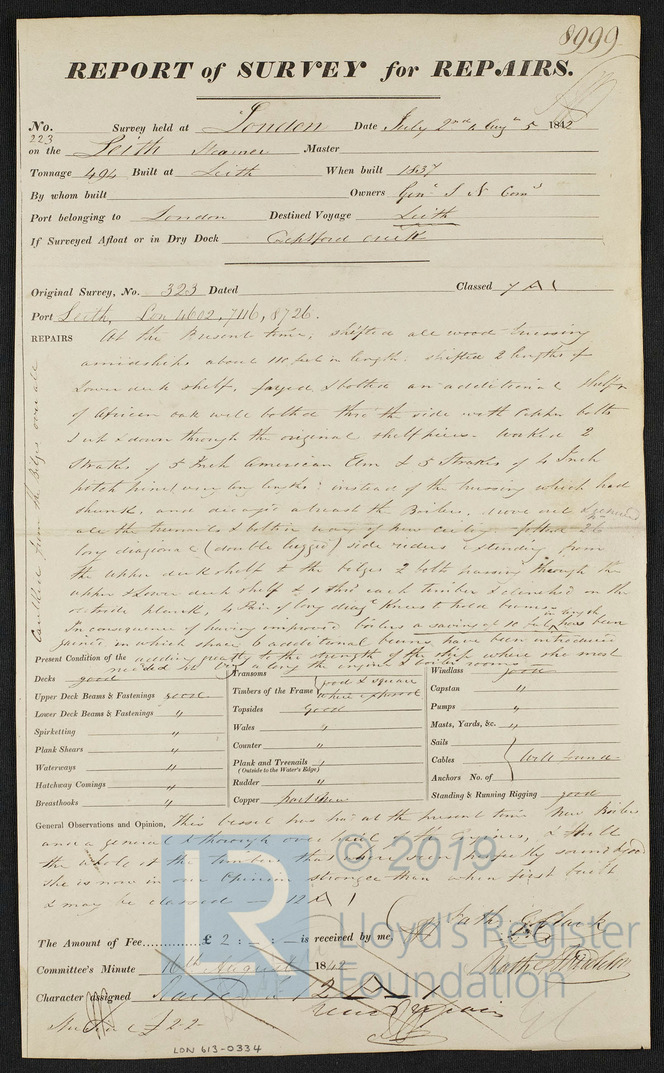 8999
REPORT of SURVEY for REPAIRS.
No. 223 Survey held at London Date July 2nd & Augst 5 1842
on the Leith Steamer Master
Tonnage 494 Built at Leith When built 1837
By whom built Owners Genl S N Comy
Port belonging to London Destined Voyage Leith
If Surveyed Afloat or in Dry Dock Deptford Creek
Original Survey, No. 323 Dated Classed 7 A 1
Port Leith, Lon 4602, 7446, 8726.
REPAIRS At the present time, shifted all wood trussing
amidships about 110 feet in length: shifted 2 lengths of
Lower deck shelf, fayed & bolted an additional shelf
of African oak well bolted thro the side with Copper bolts
& up & down through the original shelf pieces. Worked 2
Strakes of 5 Inch American Elm & 5 Strakes of 4 Inch
pitch pine (very long lengths) instead of the trussing which had
shrunk, and decayed abreast the Boilers, drove out & renewed
all the treenails & bolts in way of new ceiling. fitted 26
long diagonal (double legged) side riders extending from
the upper deck shelf to the bilges 2 bolts passing through the
upper & Lower deck shelf & 1 thro each timber & clenched on the
outside plank, 4 Pair of long diagl Knees to hold beams
In consequence of having improved boilers a saving of 10 feet in length has been
gained in which space 6 additional beams have been introduced
adding greatly to the strength of the ship where she most
needed it, viz along the engine & boiler rooms
Caulked from the Bilges over all
Present Condition of the
Decks good
Upper Deck Beams & Fastenings good
Lower Deck Beams & Fastenings "
Spirketting "
Plank Shears "
Waterways "
Hatchway Comings "
Breasthooks "
Transoms
Timbers of the Frame good & square where exposed
Topsides Good
Wales "
Counter "
Plank and Treenails "
(Outside to the Water's Edge)
Rudder "
Copper part New
Windlass good
Capstan "
Pumps "
Masts, Yards, &c. "
Sails
Cables Well found
Anchors No. of
Standing & Running Rigging good
General Observations and Opinion, This vessel has had at the present time New Boilers
and a general & thorough overhaul of the Engines, & Hull
the whole of the timbers that were seen perfectly sound & good
She is now in our Opinion stronger than when first built
& may be classed — 12 A 1
The Amount of Fee £ 2 : – : – is received by me,
Committee's Minute 16th August 1842
Character assigned 12 A 1
LON 613-0334
LR
© 2019
Lloyd's Register
Foundation